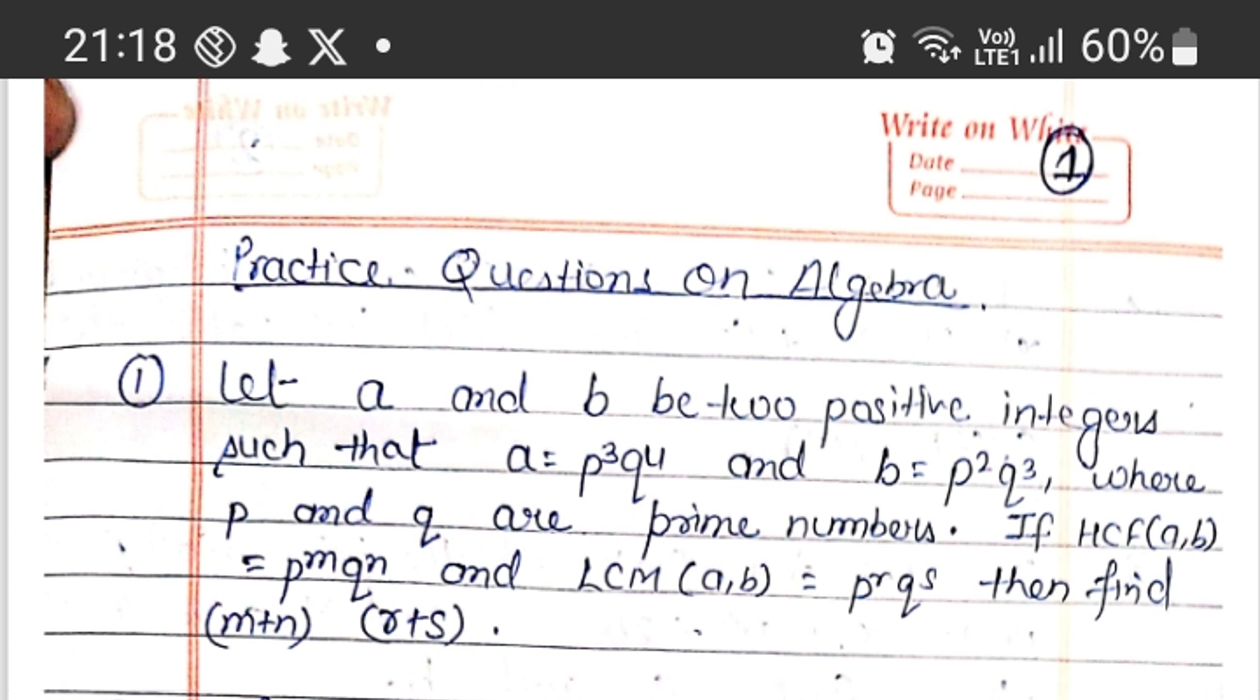 21:18 X Vo)) LTE1 60%
Write on White
Date
Page
1
Practice Questions On Algebra.
① Let a and b be two positive integers
such that a = p³q⁴ and b = p²q³, where
p and q are prime numbers. If HCF(a,b)
= pᵐqⁿ and LCM (a,b) = pʳqˢ then find
(m+n) (r+s).